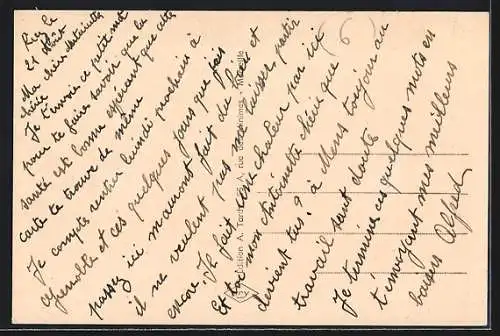 Riez le
21 Août
Ma chère Antoinette
chérie
Je t'envoie ce petit mot
pour te faire savoir que la
santé est bonne espérant que cette
carte te trouve de même
Je compte rentrer lundi prochain à
Grenoble et ces quelques jours que j'ais
passez ici m'auront fait du bien et
il ne veulent pas me laisser partir
encore. Il fait chaleur par ici
Et toi mon Antoinette chérie que
devient tu? à Mens toujour au
travail sant doute
Je termine ces quelques mots en
t'envoyant mes meilleurs
baisers Alfred
(6)
Edition A. Tardy
Marseille